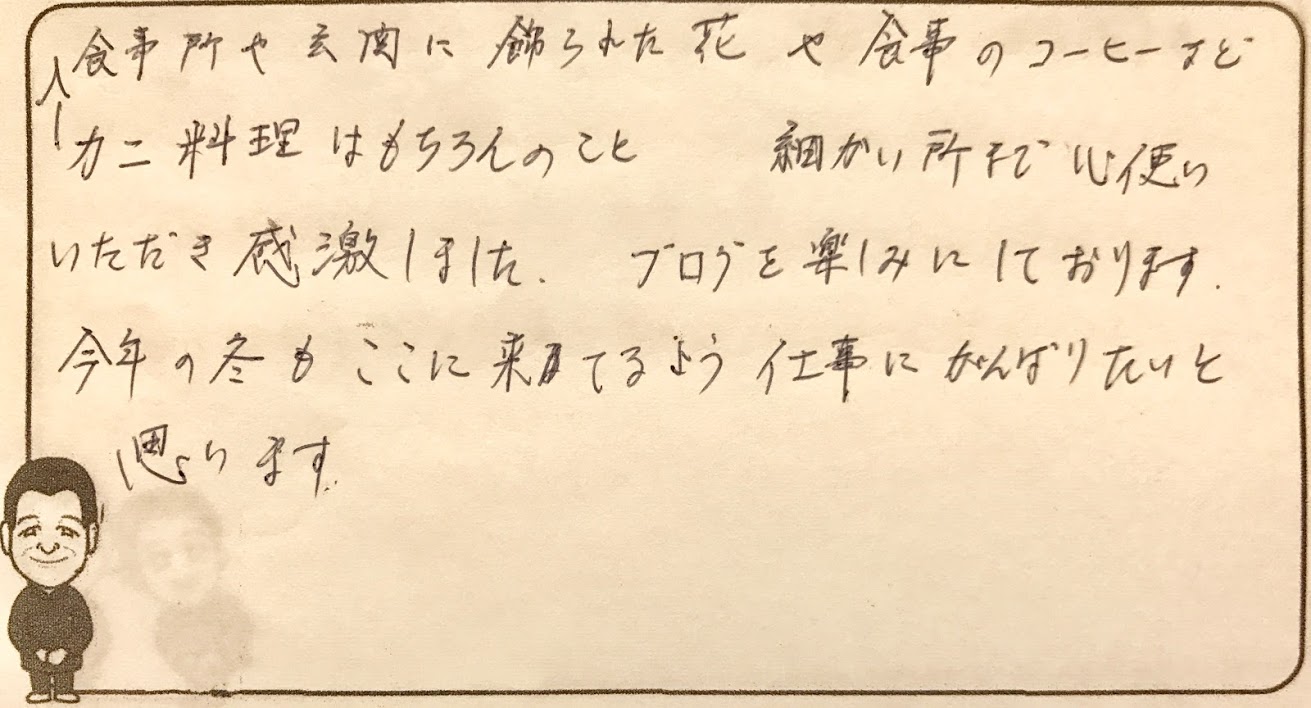 食事所や玄関に飾られた花や食事のコーヒーなど
カニ料理はもちろんのこと 細かい所まで心使い
いただき感激しました. ブログを楽しみにしております.
今年の冬もここに来てるよう仕事にがんばりたいと
思います.